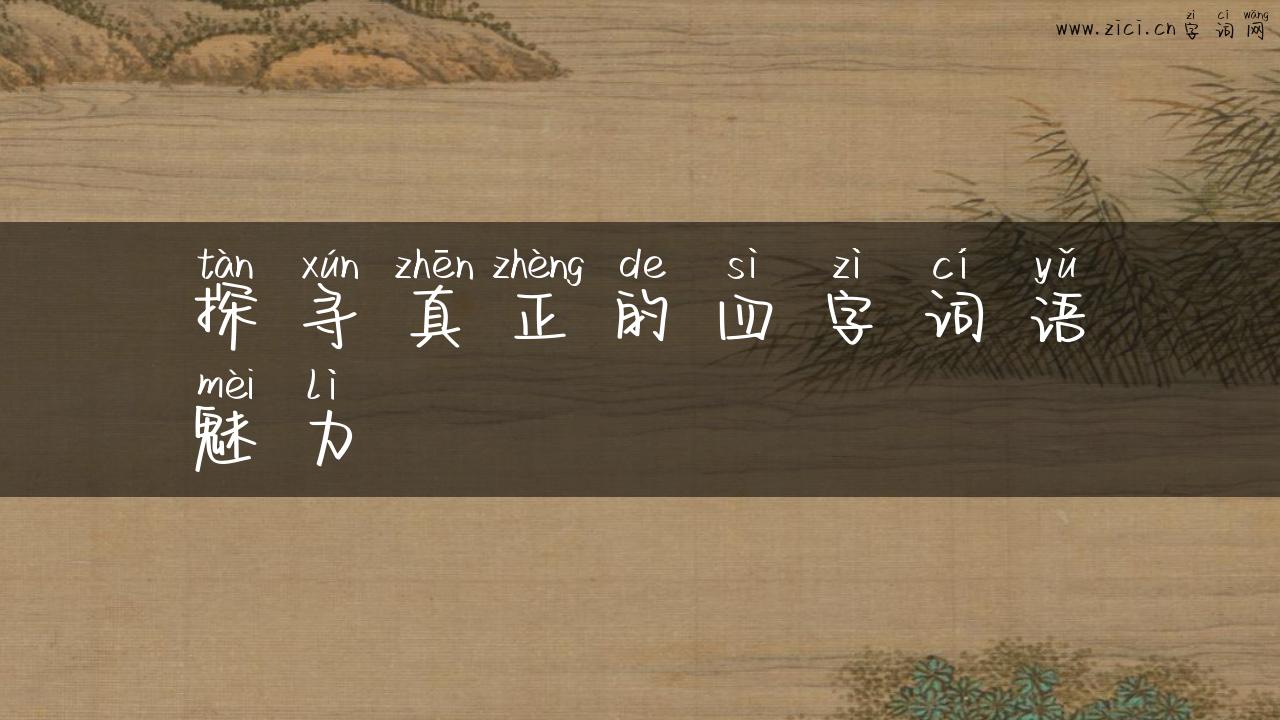 zì cí wǎng
www.zici.cn 字词网
tàn xún zhēn zhèng de sì zì cí yǔ
探寻真正的四字词语
mèi lì
魅力